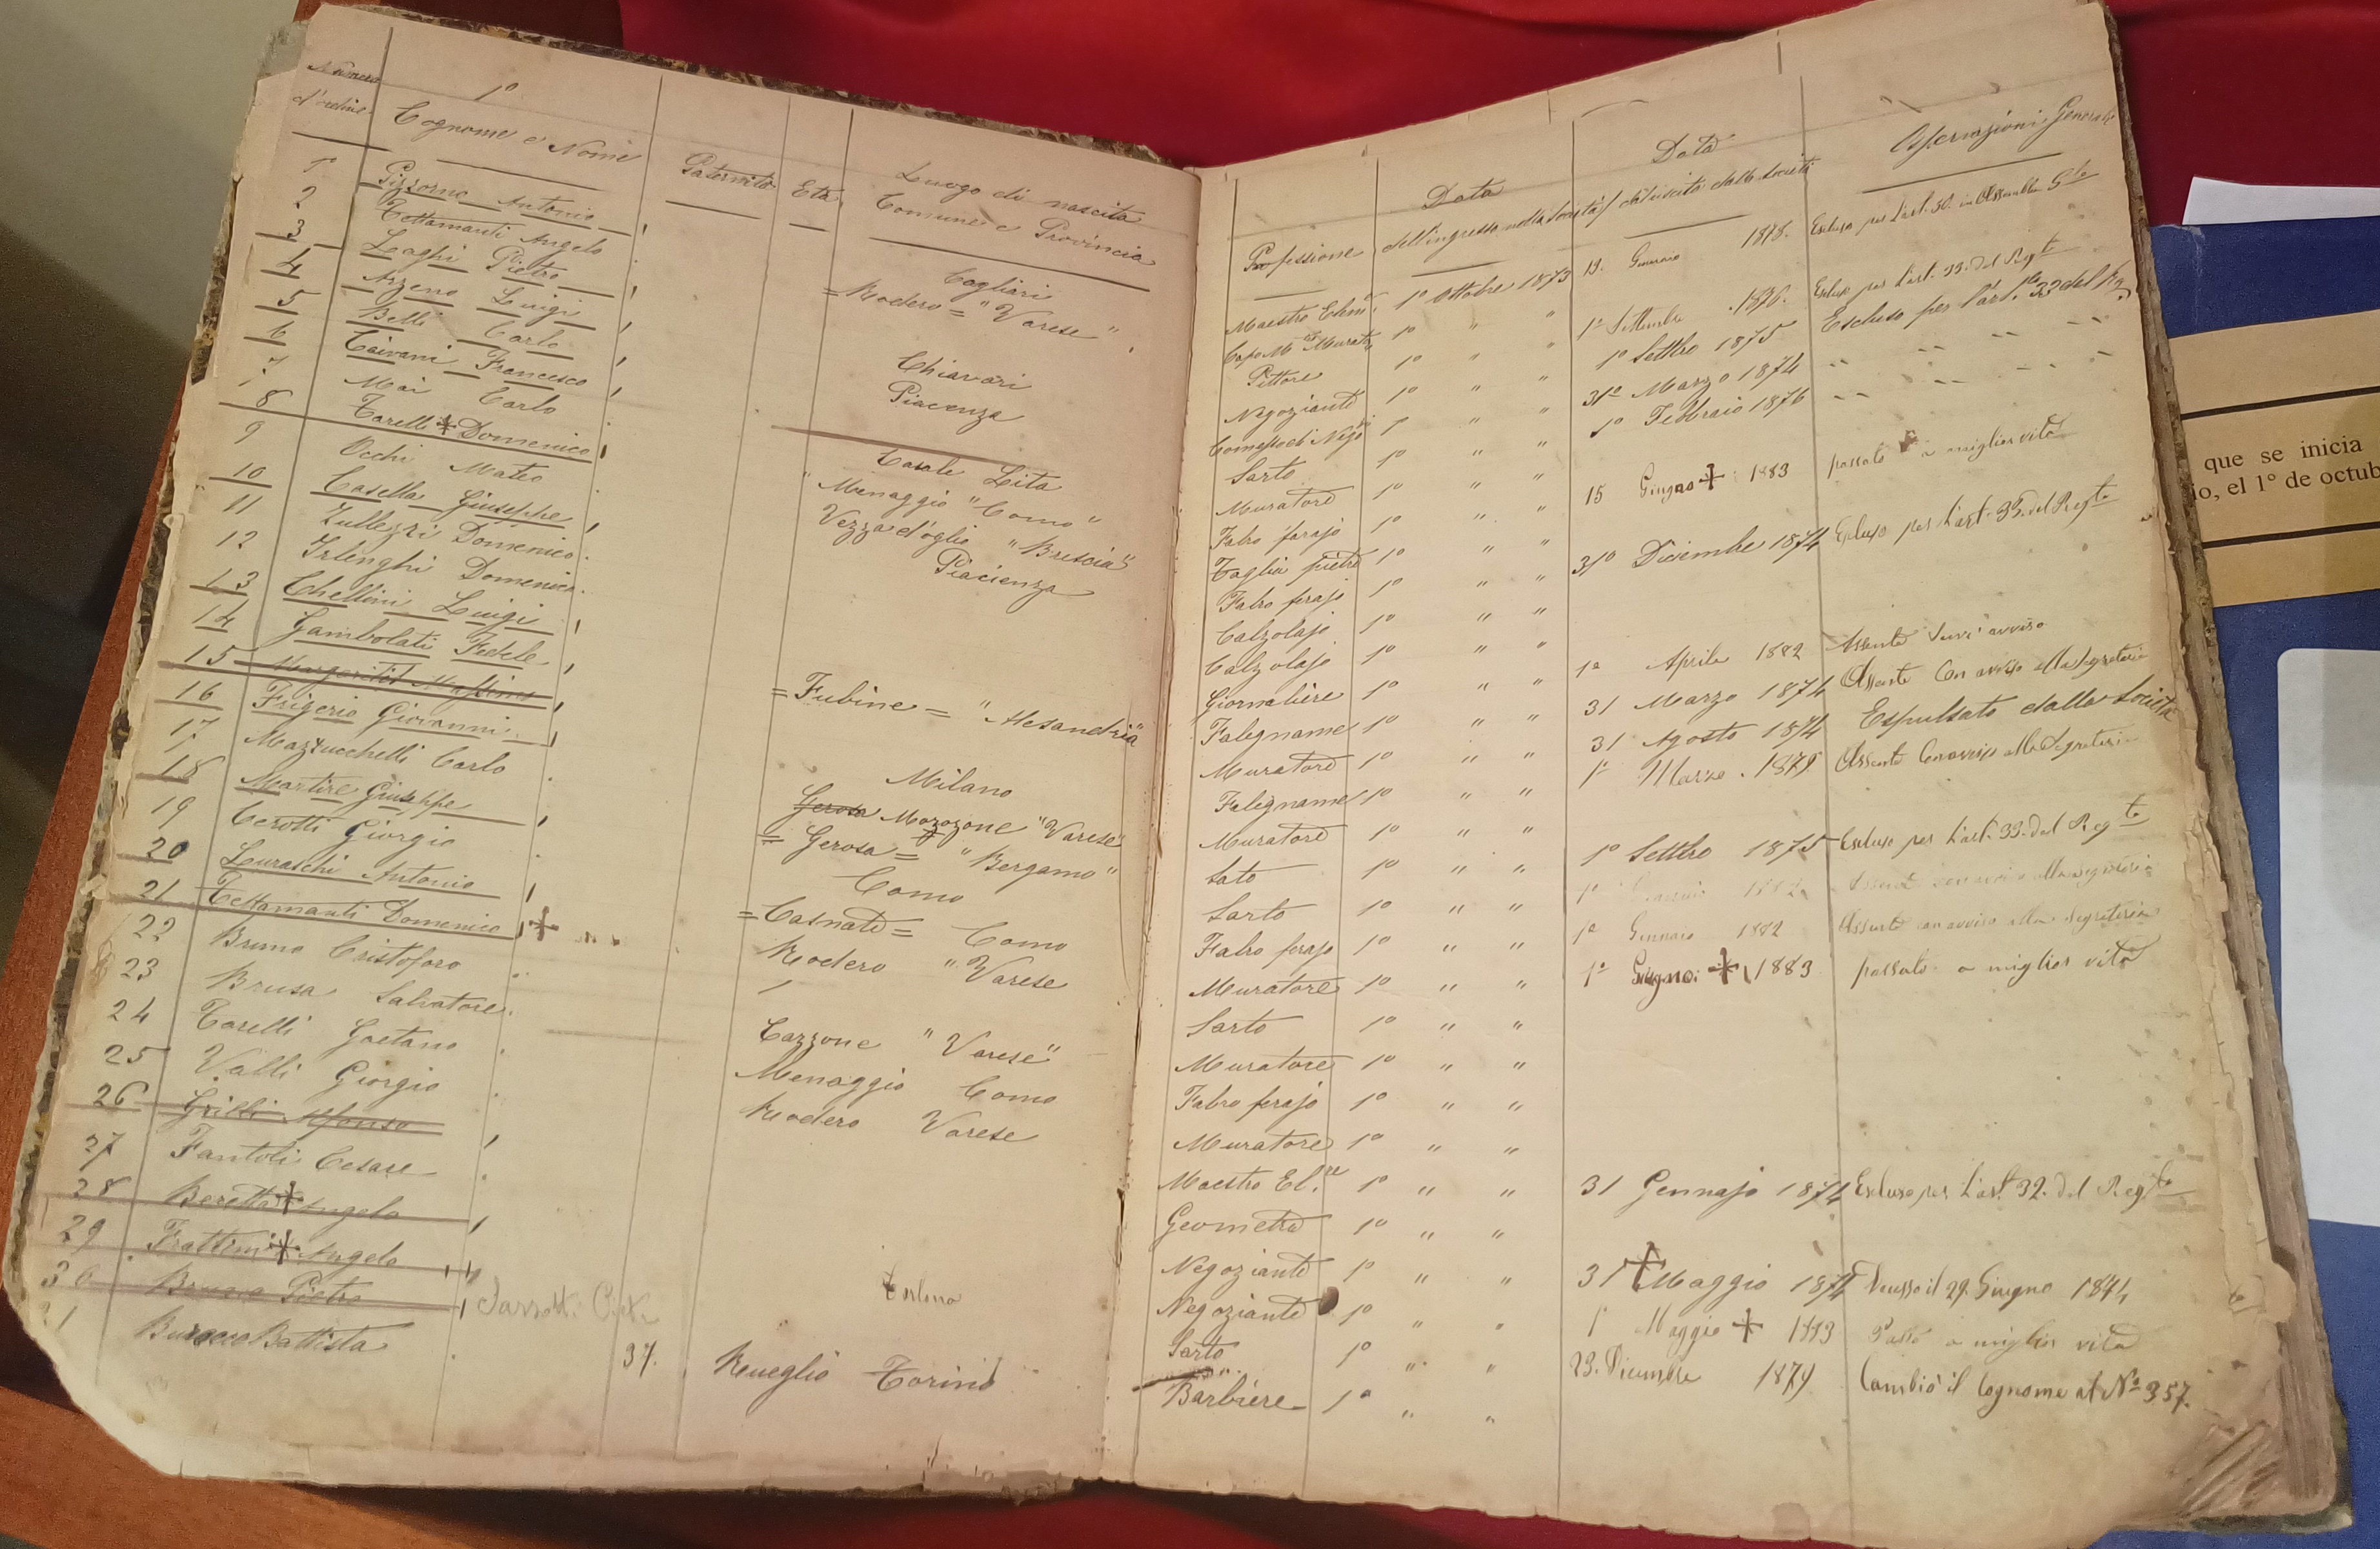 Numero d'ordine
1º
Cognome e Nome
Paternità
Età
Luogo di nascita
Comune e Provincia
1º Pizzorno Antonio
2 Tettamanti Angelo
3 Laghi Pietro
4 Arzeno Luigi
5 Belli Carlo
6 Caivani Francesco
7 Mai Carlo
8 Tarelli Domenico
9 Occhi Mateo
10 Casella Giusephe
11 Zullegri Domenico
12 Irlenghi Domenico
13 Chellini Luigi
14 Gambolati Fedele
15
16 Frigerio Giovanni
17 Mazzucchelli Carlo
18 Martire Giusephe
19 Cerotti Giorgio
20 Luraschi Antonio
21 Tettamanti Domenico
22 Bruno Cristoforo
23 Brusa Salvatore
24 Tarelli Gaetano
25 Valli Giorgio
26 Grilli Alfonso
27 Fantoli Cesare
28 Beretta Angelo
29 Frattini Angelo
30 Bruno Pietro
Battista
37.
Cagliari
=Rodero= "Varese"
Chiavari
Piacenza
Casale Lita
"Menaggio "Como"
Vezza d'oglio "Brescia"
Piacienza
=Fubine= "Alesandria"
Milano
Gerosa Morozone "Varese"
=Gerosa= "Bergamo"
Como
=Casnate= Como
Rodero "Varese
Cazzone "Varese"
Menaggio Como
Rodero Varese
Rueglio Torino
Professione
Data
dell'ingresso nella Società
Data
dell'uscita dalla Società
Osservazioni Generali
Maestro Elem. 1º Ottobre 1873 19. Gennaio 1878. Escluso per l'art. 30. in Assemblea Gle
Capo M Murat. 1º " " 1º Settembre 1876. Escluso per l'art. 33. del Regto
Pittore 1º " " 1º Settbro 1875 Escluso per l'art. 33 del Reg
Negoziante 1º " " 31º Marzo 1874 " " " "
Comesso di Nego 1º " " 1º Febbraio 1876 " " " "
Sarto 1º " "
Muratore 1º " "
Fabro ferajo 1º " " 15 Giugno 1883 passato a miglior vita
Taglia pietre 1º " "
Fabro ferajo 1º " " 31º Diciembre 1874 Escluso per l'art. 33. del Regto
Calzolajo 1º " "
Calzolajo 1º " "
Giornaliere 1º " " 1º Aprile 1882 Assente senz' avviso
Falegname 1º " " 31 Marzo 1874 Assente Con avviso alla Segreteria
Muratore 1º " " 31 Agosto 1874 Espulsato dalla Società
Falegname 1º " " 1º Marzo 1879 Assente Con avviso alla Segreteria
Muratore 1º " "
Sato 1º " " 1º Settbro 1875 Escluso per l'art. 33. del Regto
Sarto 1º " " 1º 1882
Fabro ferajo 1º " " 1º Gennaio 1882 Assente con avviso alla Segreteria
Muratore 1º " " 1º Giugno 1883 passato a miglior vita
Sarto 1º " "
Muratore 1º " "
Fabro ferajo 1º " "
Muratore 1º " "
Maestro El.re 1º " " 31 Gennajo 1874 Escluso per l'art. 32. del Regto
Geometra 1º " "
Negoziante 1º " " 31 Maggio 1874 il 29. Giugno 1844
Negoziante 1º " " 1º Maggio 1893 Passò a miglior vita
Sarto 1º " " 23. Dicembre 1879 Cambiò il Cognome al Nº 357.
Barbiere 1º " "
que se inicia
io, el 1º de octub